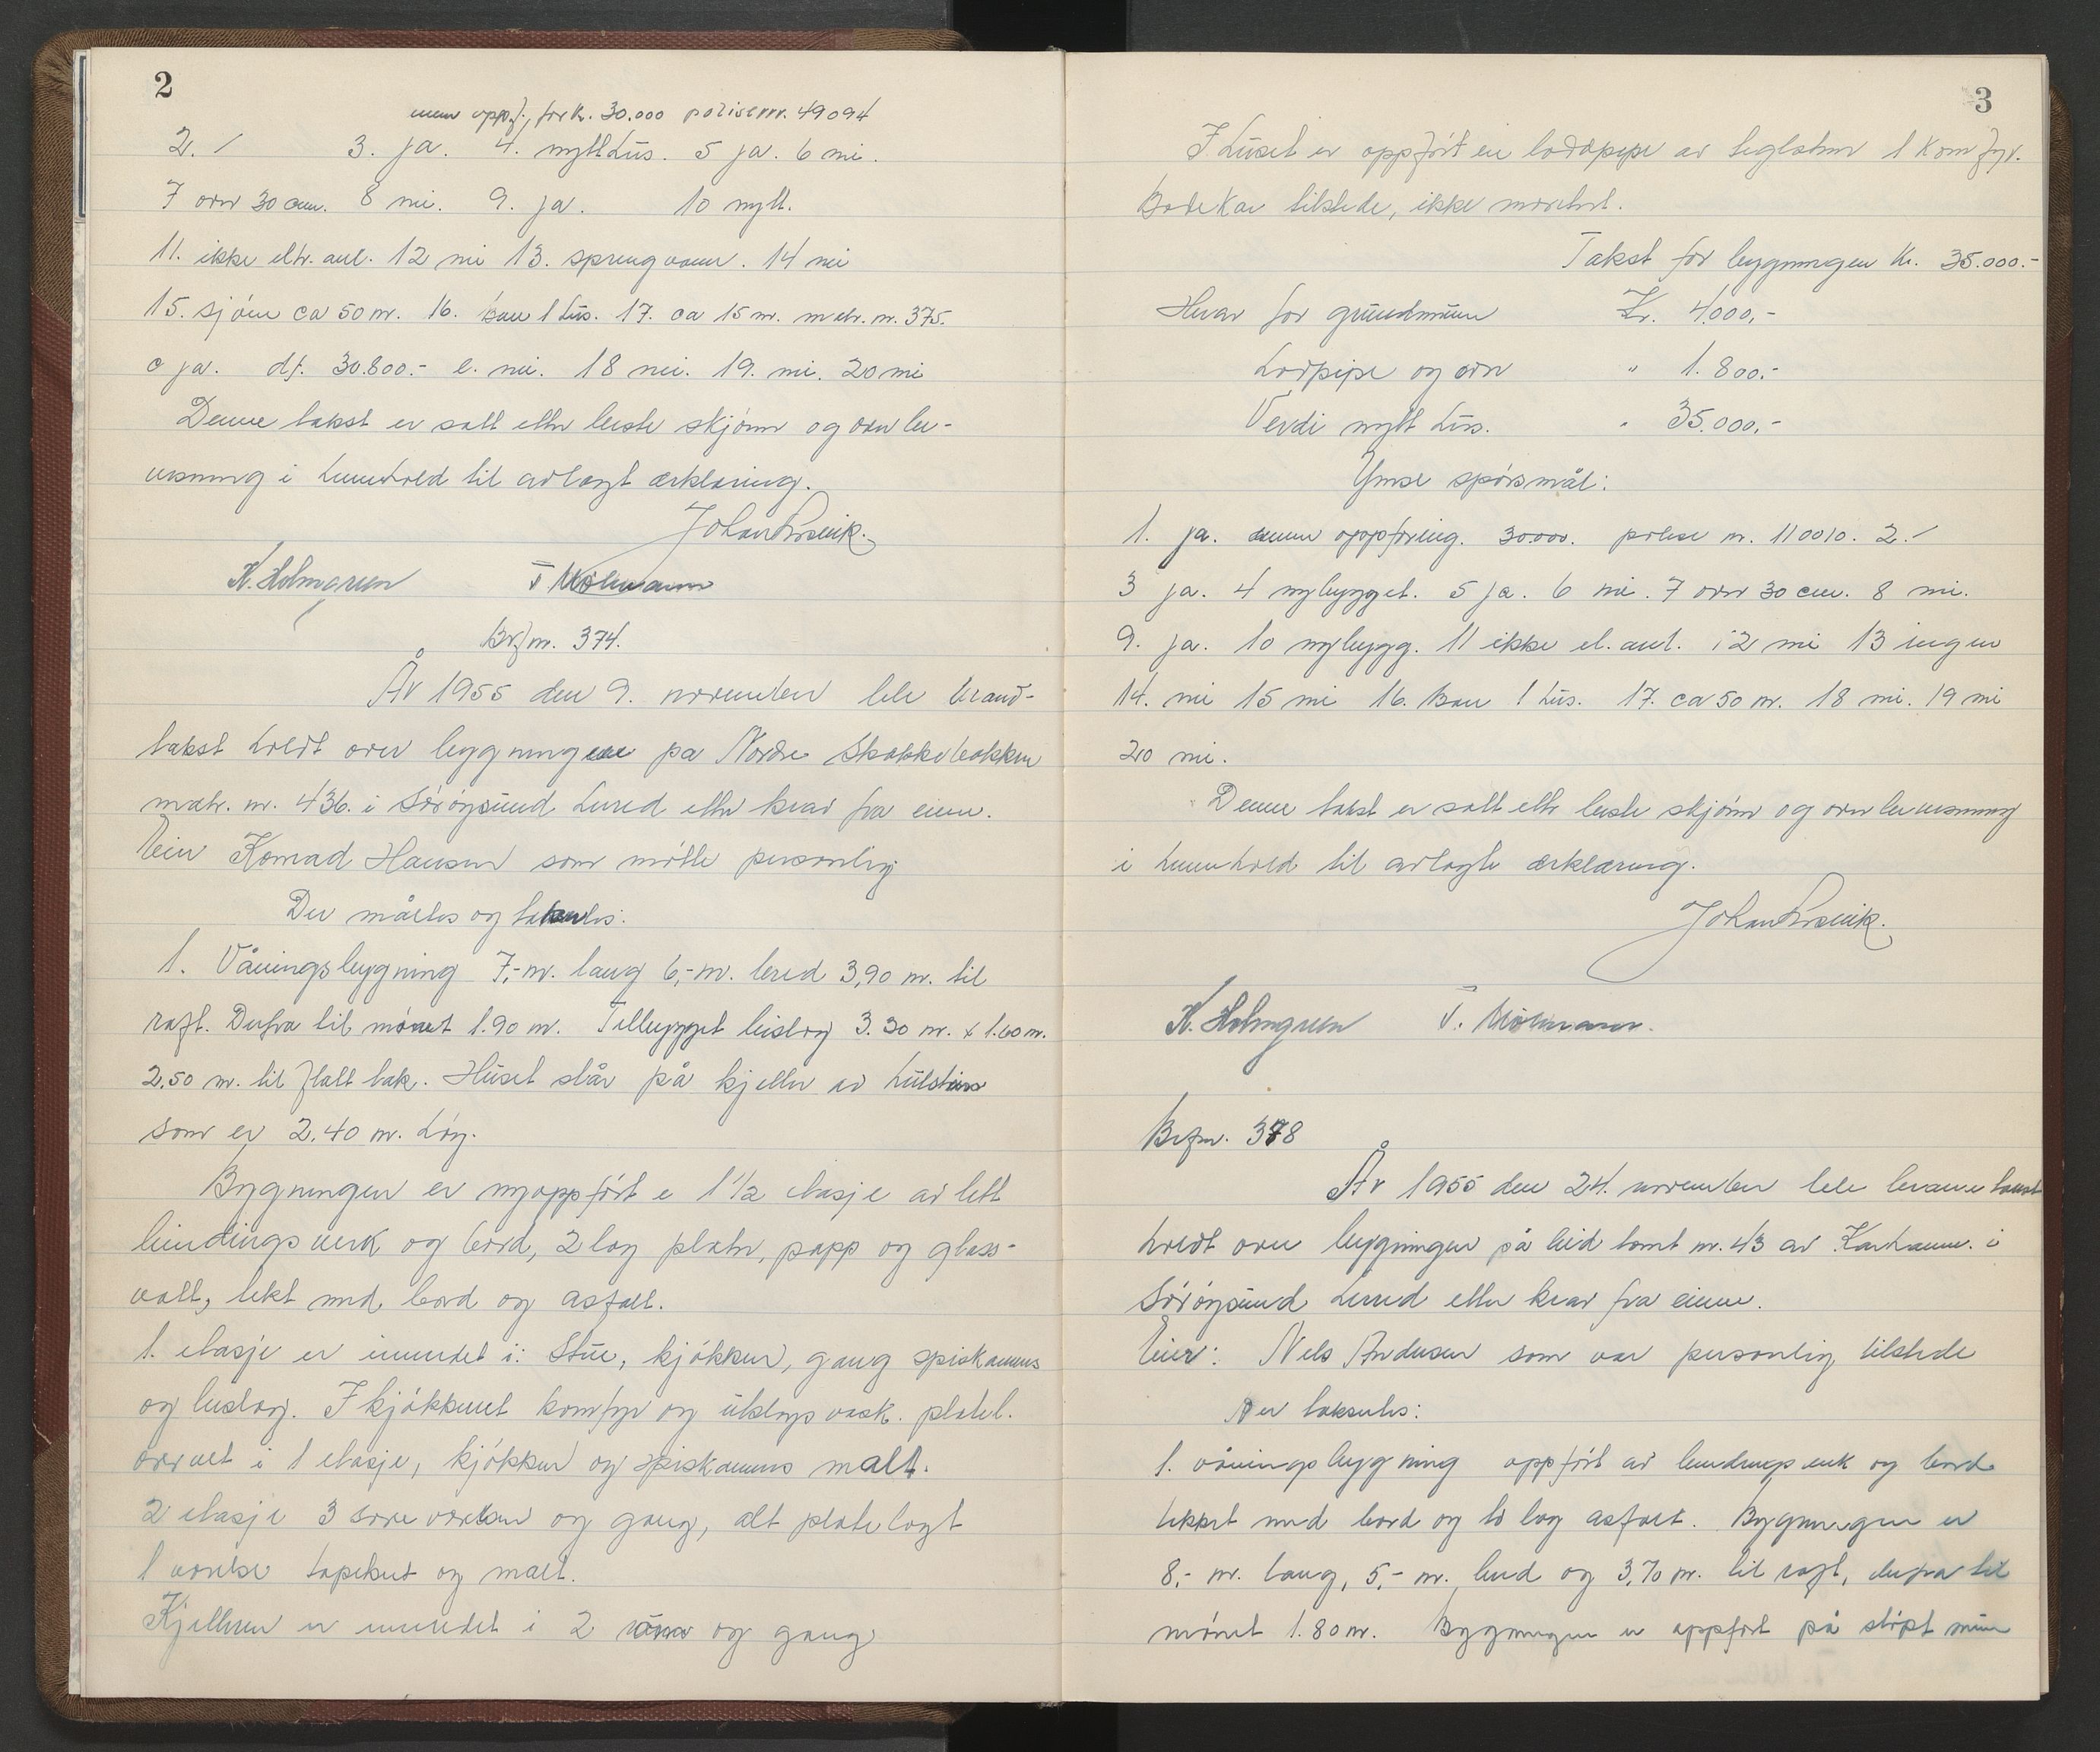 2
under oppf., for kr. 30.000 polisenr. 49094
2. / 3. ja. 4. nytt hus. 5 ja. 6 nei.
7 ovn 30 cm. 8 nei. 9. ja. 10 nytt.
11. ikke eltr. anl. 12 nei 13. springvann. 14 nei
15. sjøen ca 50 m. 16. bare 1 hus. 17. ca 15 m. matr. nr. 375.
c ja. df. 30.800.- e. nei. 18 nei. 19. nei. 20 nei
Denne takst er satt etter beste skjønn og overbe-
visning i henhold til avlagt erklæring.
Johan
K. Holmgren
Brf nr. 374.
År 1955 den 9. november ble brand-
takst holdt over bygningene på Nordre Skakkebakken
matr. nr. 436. i Sørøysund herred etter krav fra eieren.
Eier Konrad Hansen som møtte personlig
Der måltes og taksertes:
1. Våningsbygning 7,- m. lang 6,- m. bred 3,90 m. til
raft. Derfra til mønet 1.90 m. Tilbygget bislag 3.30 m. x 1.60 m.
2.50 m. til flatt tak. Huset står på kjeller av hulsten
som er 2.40 m. høy.
Bygningen er nyoppført i 1 1/2 etasje av lett
bindingsverk og bord, 2 lag plater, papp og glass-
vatt, tekt med bord og asfalt.
1. etasje er innredet i: Stue, kjøkken, gang spiskammers
og bislag. I kjøkkenet komfyr og utslagsvask. platel.
overalt i 1 etasje, kjøkken og spiskammers malt.
2 etasje 3 soveværelser og gang, alt platelagt
1 værelse tapetsert og malt.
Kjelleren er innredet i 2 rom og gang
3
I huset er oppført en loddpipe av teglsten 1 komfyr.
Badekar tilstede, ikke montert.
Takst for bygningen kr. 35.000.-
Herav for grundmuren Kr. 4.000,-
Lodpipe og ovn " 1.800.-
Verdi nytt hus. " 35.000,-
Ymse spørsmål:
1. ja. under oppføring. 30.000. polise nr. 110010. 2. /
3 ja. 4 nybygget. 5 ja. 6 nei. 7 ovn 30 cm. 8 nei.
9. ja. 10 nybygg. 11 ikke el. anl. 12 nei 13 ingen
14. nei 15 nei 16. Bare 1 hus. 17. ca 50 m. 18 nei. 19 nei
20 nei.
Denne takst er satt etter beste skjønn og overbevisning
i henhold til avlagte erklæring.
Johan
K. Holmgren
Brf nr. 378
År 1955 den 24. november ble branntakst
holdt over bygningen på leid tomt nr. 43 av i
Sørøysund herred etter krav fra eieren.
Eier: Nels Andersen som var personlig tilstede
Der taksertes:
1. våningsbygning oppført av bindingsverk og bord
tekket med bord og to lag asfalt. Bygningen er
8,- m. lang, 5,- m. bred og 3,70 m. til raft, derfra til
mønet 1.80 m. Bygningen er oppført på støpt mur